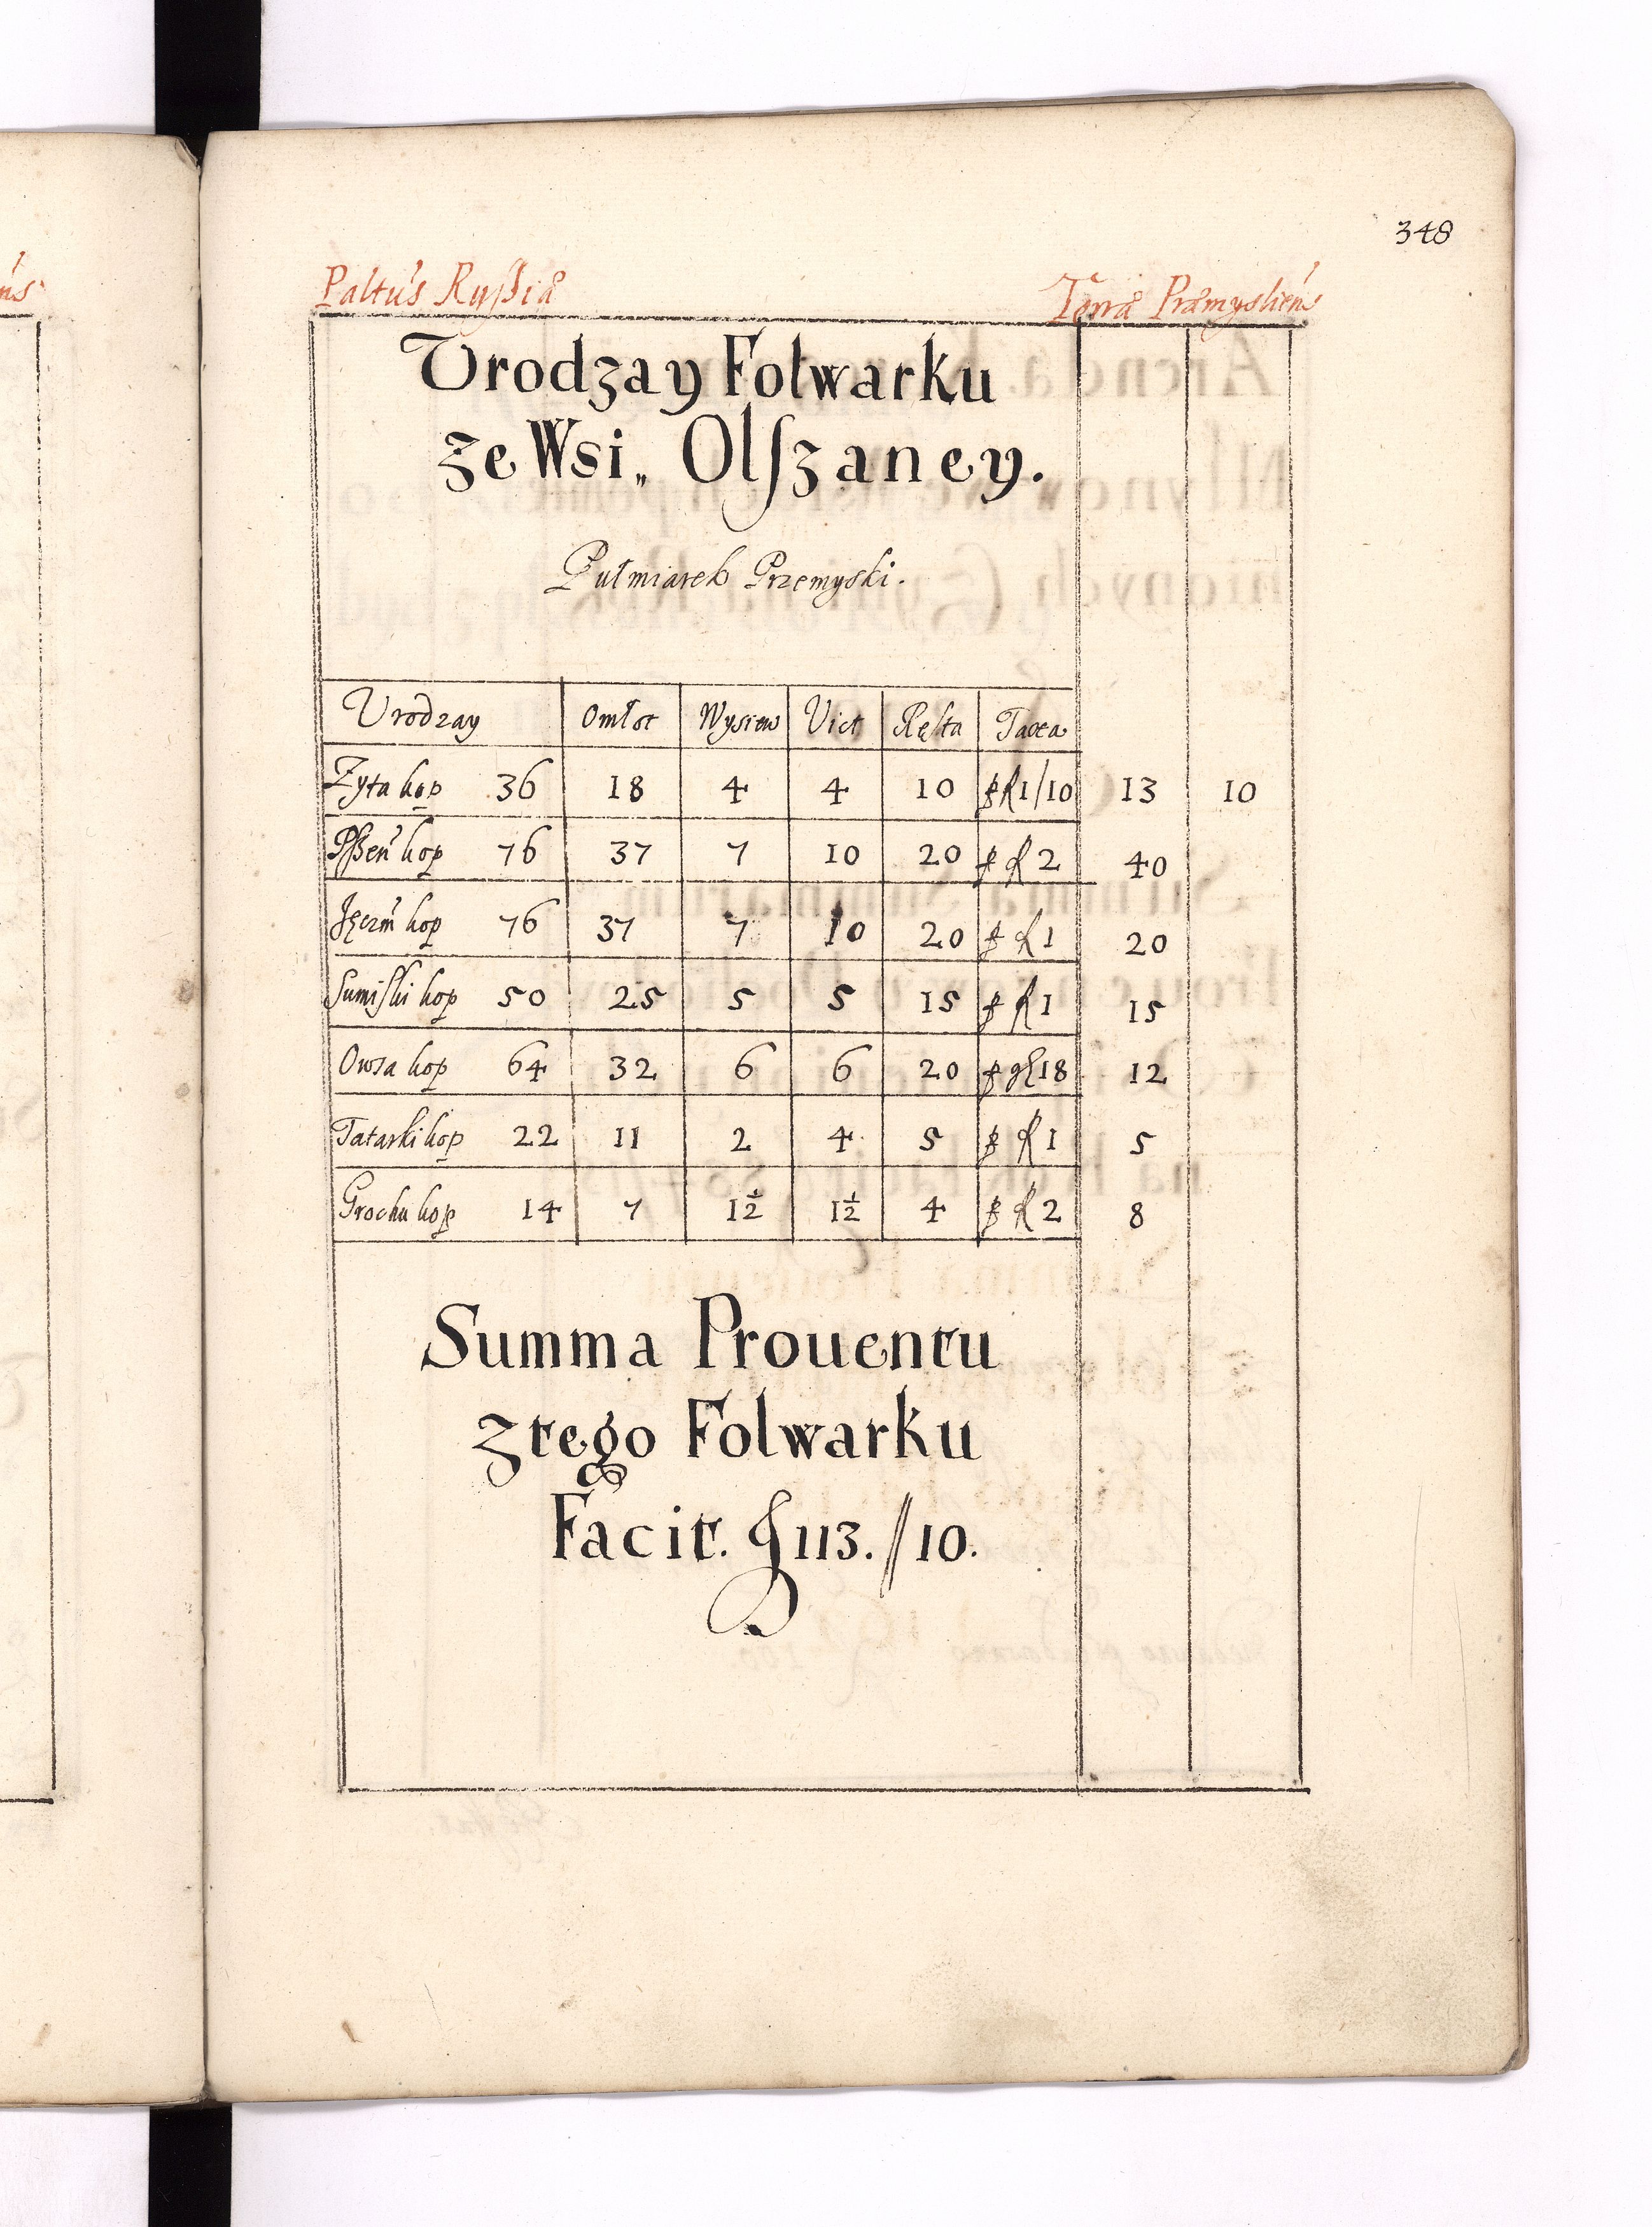 348
Paltus Russiæ
Terræ Præmysliens
Urodzay Folwarku
ze Wsi„ Olszaney.
Pułmiarek Przemyski.
Urodzay Omłot Wysiew Vict Resta Taxa
Zyta kop 36 18 4 4 10 p fl 1/10 13 10
Pszen kop 76 37 7 10 20 p fl 2 40
Jęczm kop 76 37 7 10 20 p fl 1 20
Sumiski kop 50 25 5 5 15 p fl 1 15
Owsa kop 64 32 6 6 20 p gr 18 12
Tatarki kop 22 11 2 4 5 p fl 1 5
Grochu kop 14 7 1½ 1½ 4 p fl 2 8
Summa Prouentu
z tego Folwarku
Facit. fl 113.//10.